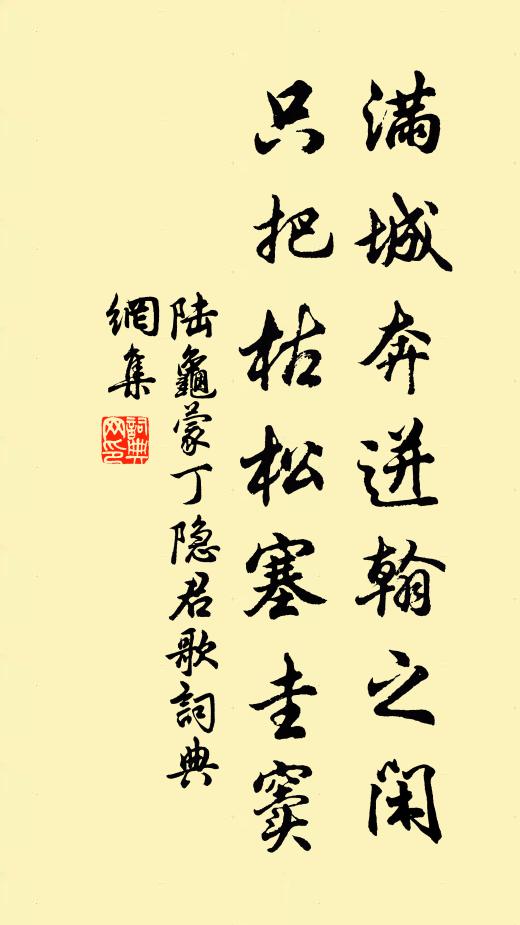 满城奔迸翰之闲
只把枯松塞圭窦
陆龜蒙丁隐君歌詞典
網集
詞典
网印